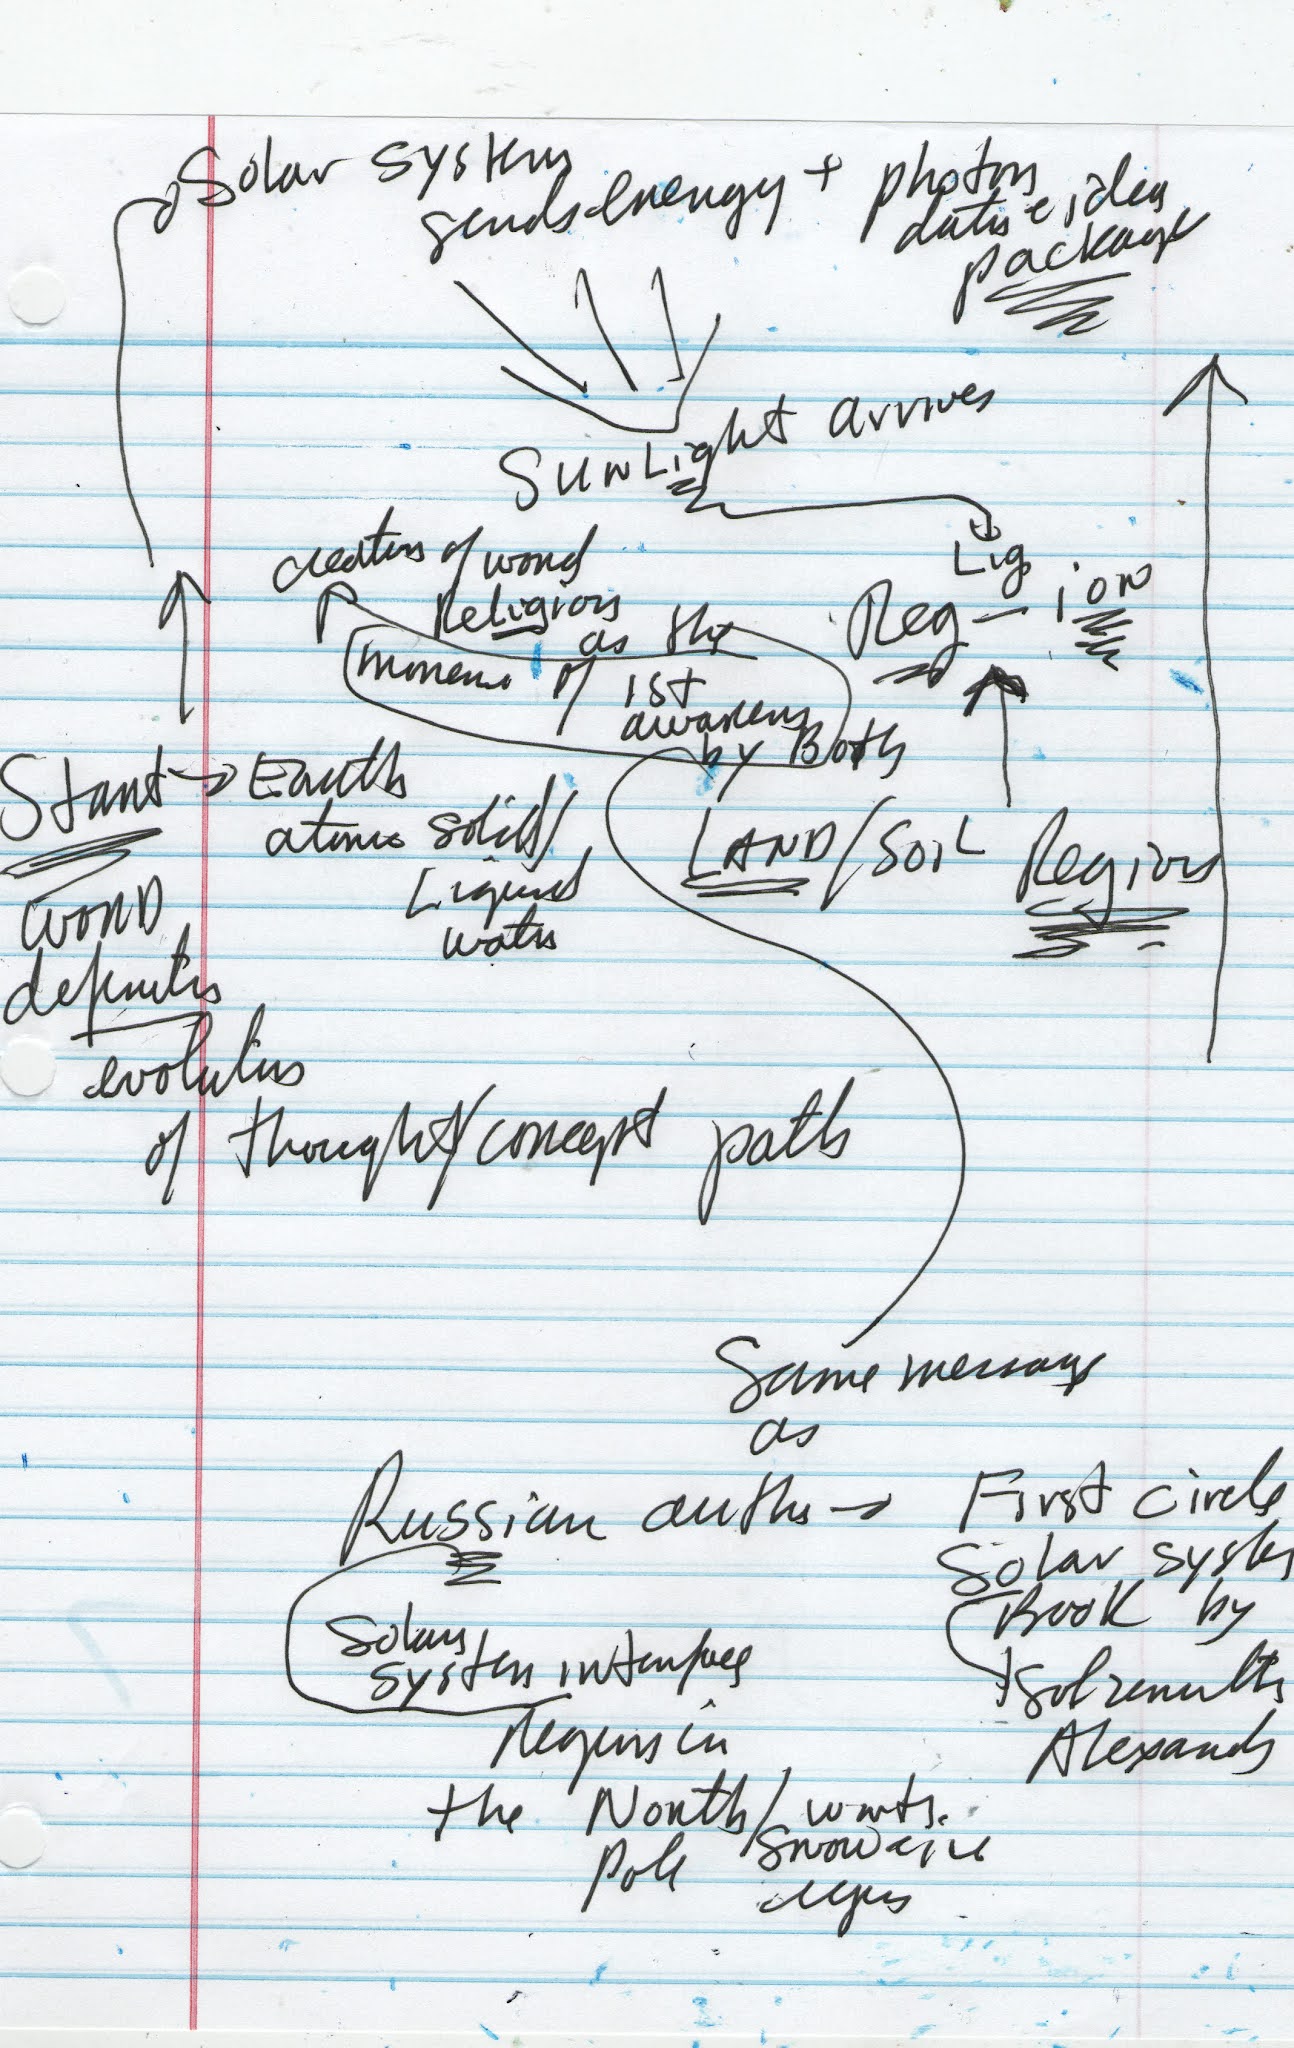 Solar System
sends energy + photons
data & idea
package
SunLight arrives
Lig
creation of word
Religion
as the
Reg - ion
moment of 1st
awareness
by Both
Start → Earth
atomic solid/
Liquid
water
LAND/SOIL Region
word
definition
evolution
of thought/concept path
Same message
as
Russian author → First Circle
Solar System
Book by
Alexander
Solar
System interface
Region in
the North/
Pole
region